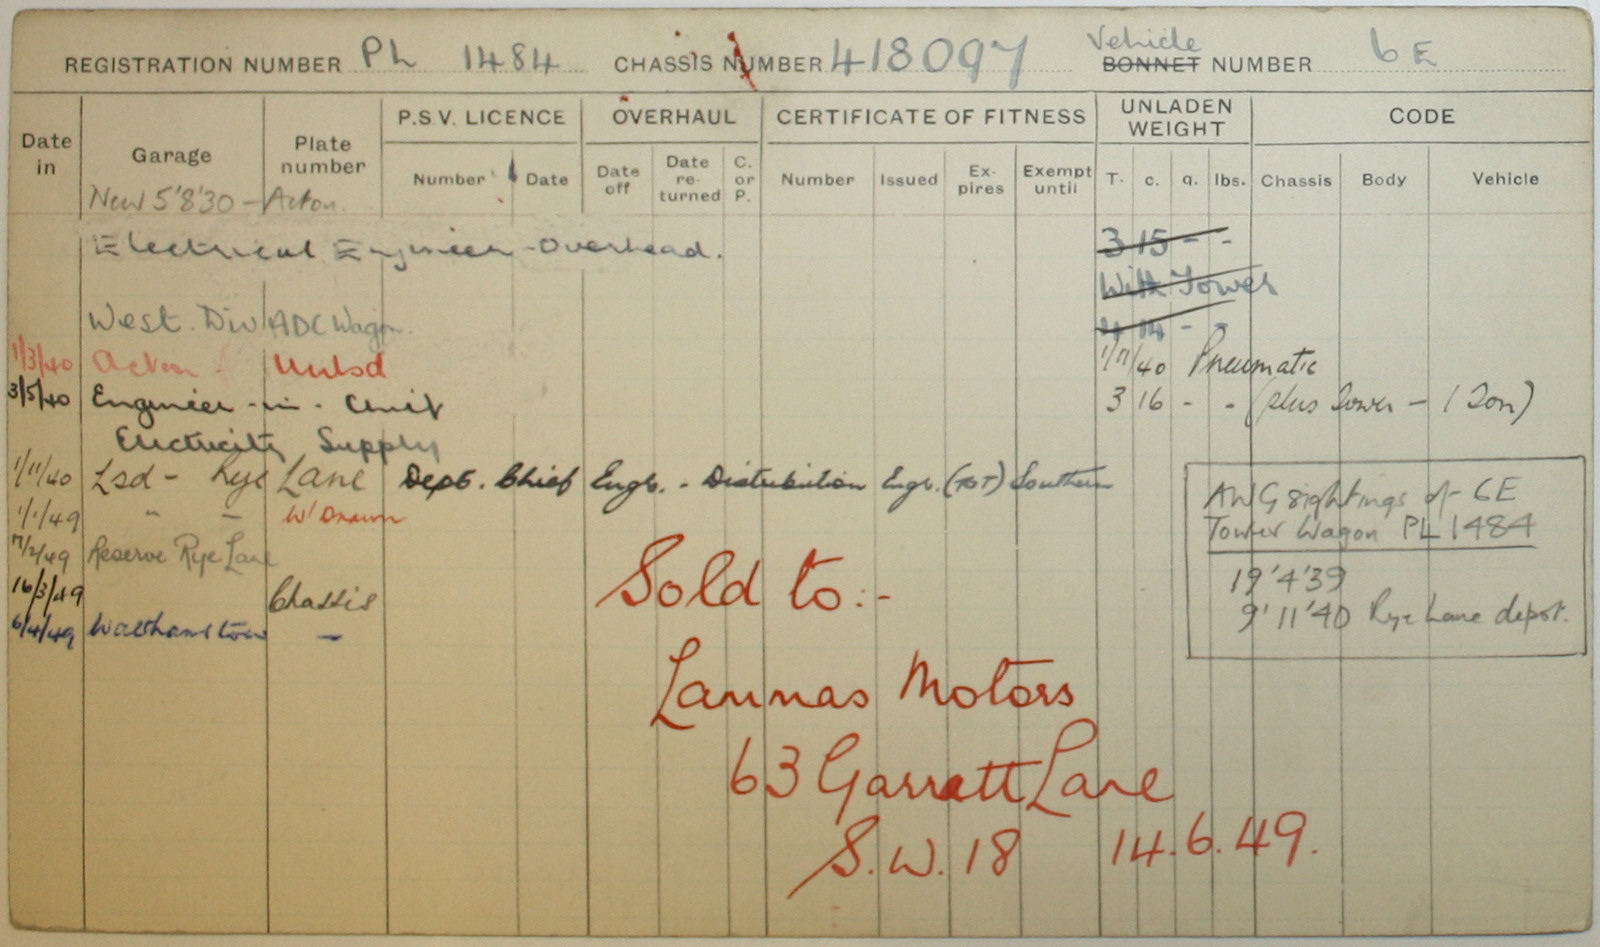 REGISTRATION NUMBER PL 1484 CHASSIS NUMBER 418097 Vehicle BONNET NUMBER 6E
Date in Garage Plate number P.S.V. LICENCE OVERHAUL CERTIFICATE OF FITNESS UNLADEN WEIGHT CODE
Number Date Date off Date re-turned C. or P. Number Issued Ex-pires Exempt until T. c. q. lbs. Chassis Body Vehicle
New 5'8'30 - Acton.
Electrical Engineer - Overhead. 3 15 - -
With Tower
West. Div ADC Wagon. 4 14 - -
1/3/40 Acton Unlsd 1/11/40 Pneumatic
3/5/40 Engineer - in - Chief 3 16 - - (plus Tower - 1 Ton)
Electricity Supply
1/11/40 Lsd - Rye Lane Dept. Chief Engr. - Distribution Engr. (TOT) Southern
1/1/49 " - W'Drawn
7/2/49 Reserve Rye Lane
16/3/49 Chassis
6/4/49 Walthamstow -
AWG sightings of - 6E
Tower Wagon PL 1484
19'4'39
9'11'40 Rye Lane depot.
Sold to:-
Lannas Motors
63 Garratt Lane
S.W.18 14.6.49.